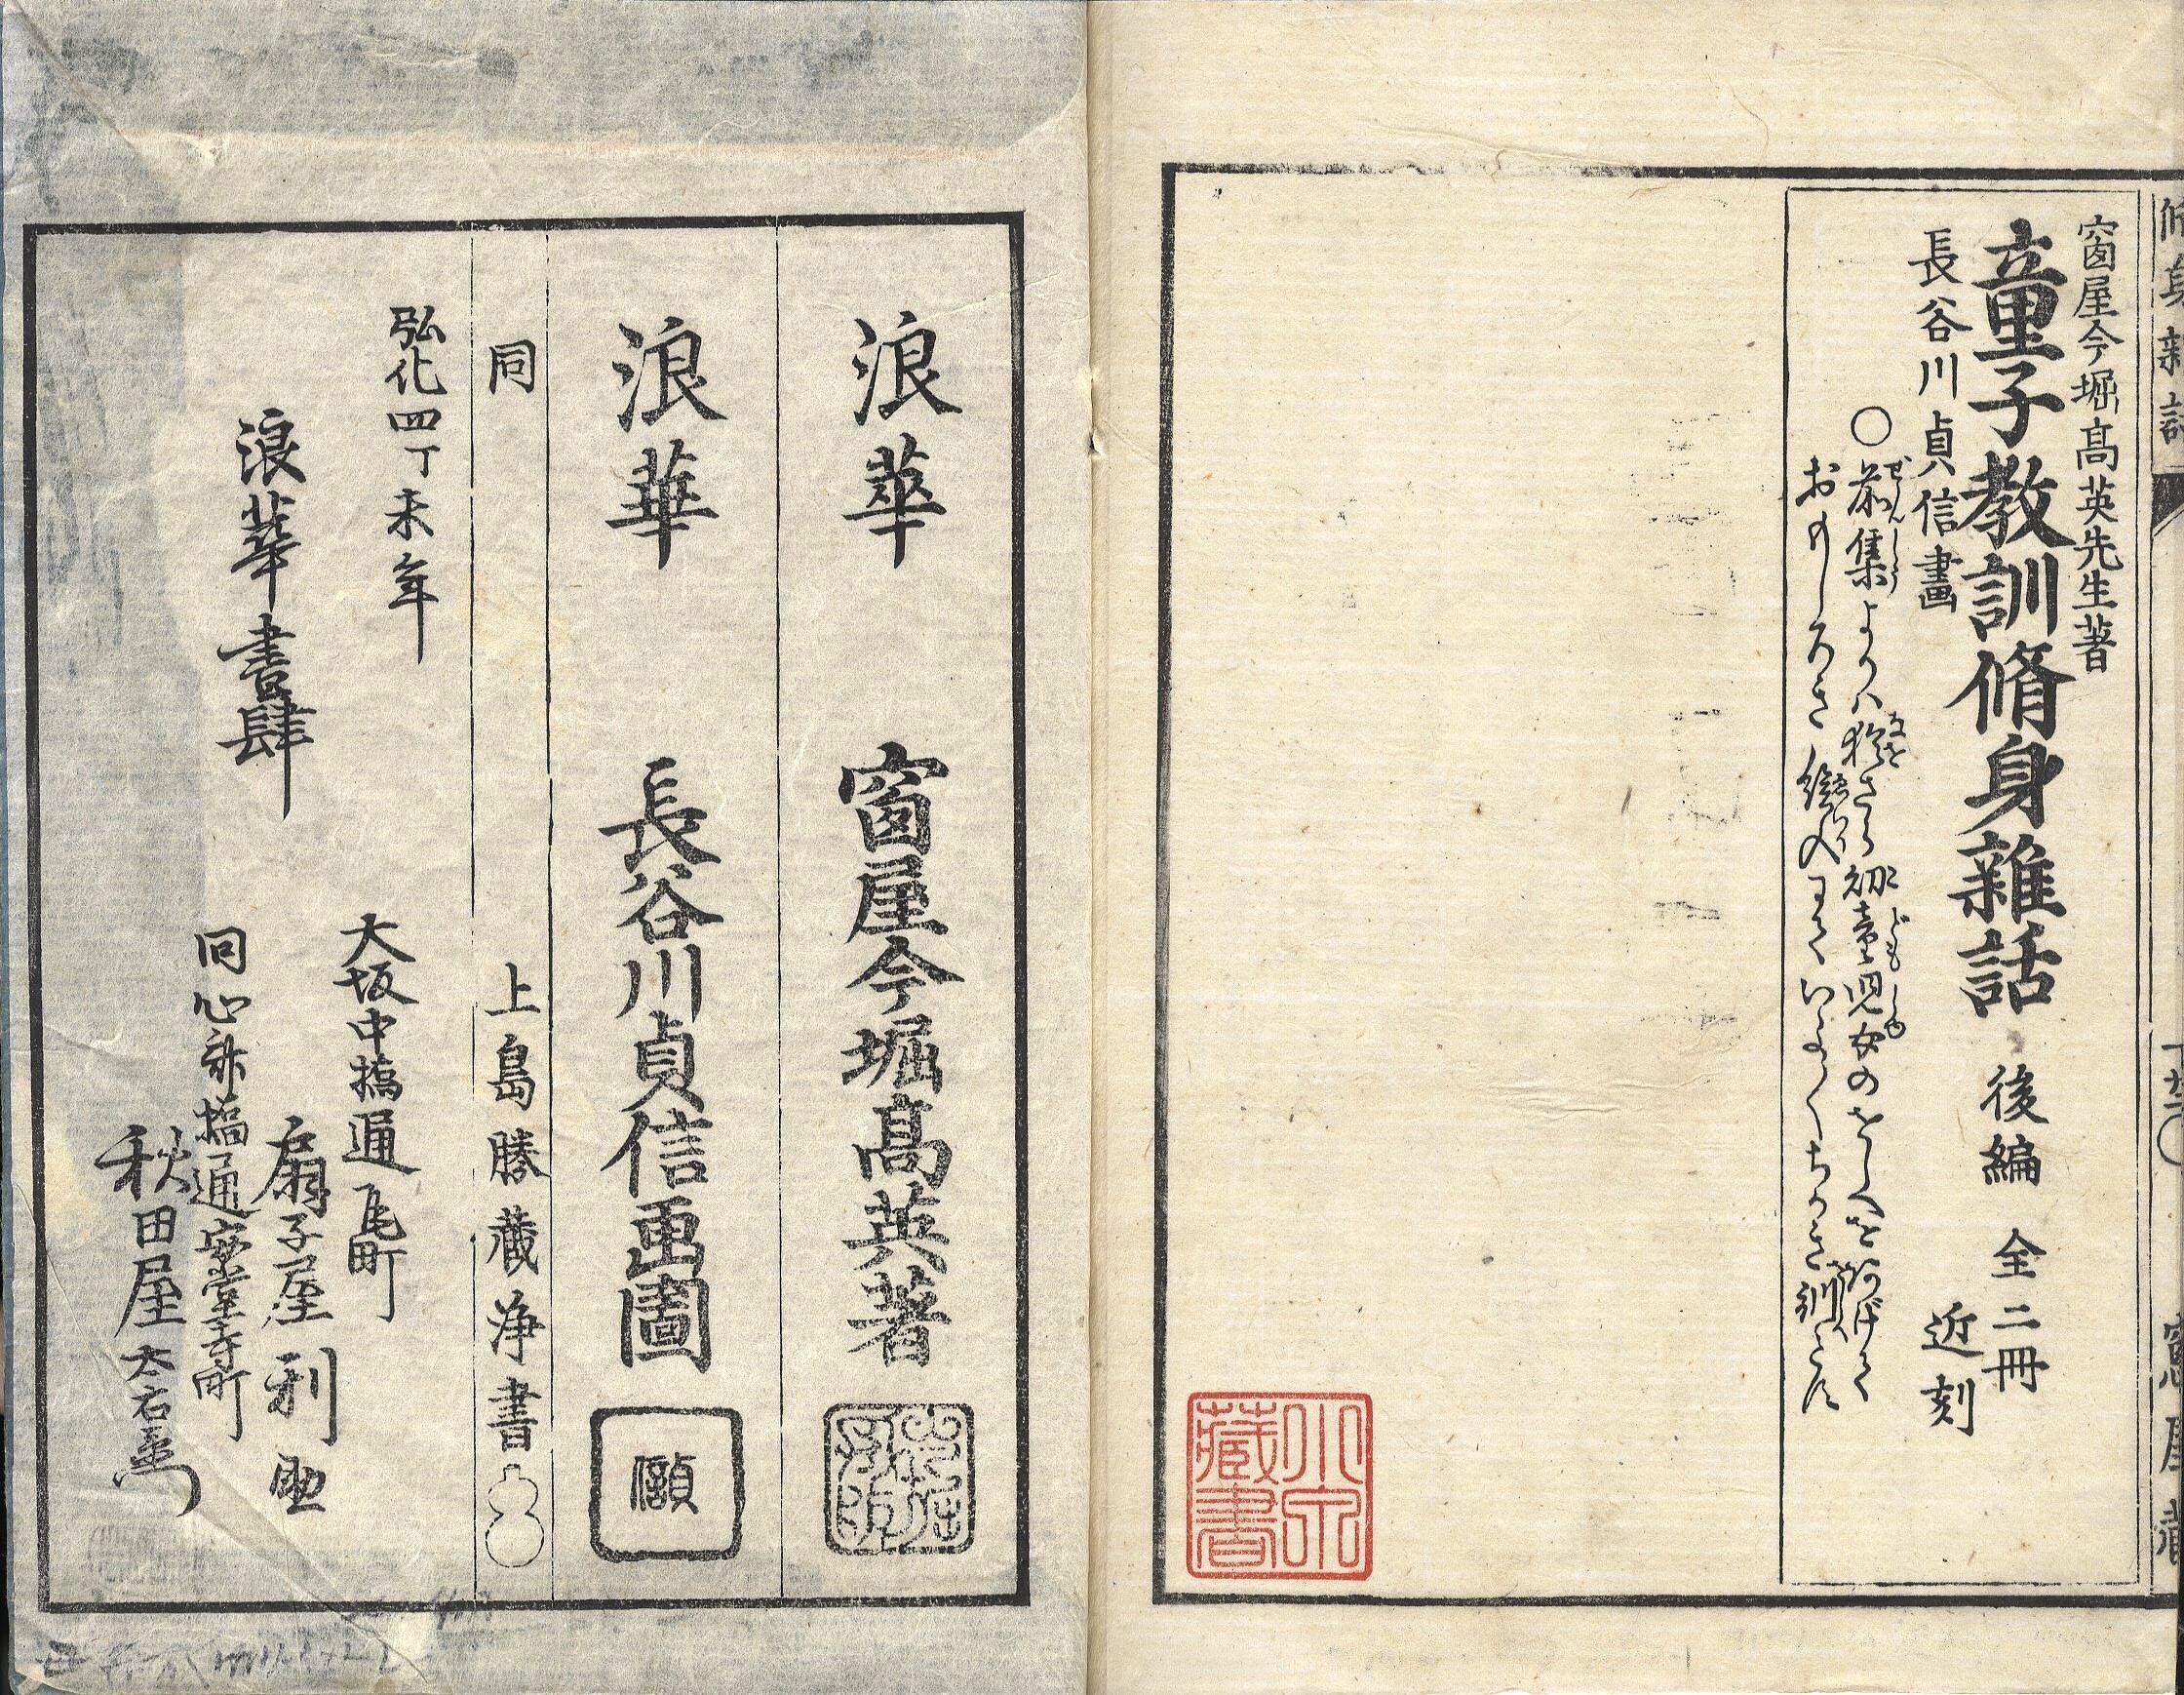 窗屋今堀髙英先生著
童子教訓脩身雜話 後編 全二冊
長谷川貞信畫 近刻
○前集よりハ猶さら幼童児女のをしへを
ぜんしう なを こどもしゆ
おもしろき繪入
浪華 窗屋今堀髙英著
浪華 長谷川貞信画圖
同 上島勝藏浄書
弘化四丁未年
浪華書肆
大坂中橋通瓦町
扇子屋利助
同心斎橋通安堂寺町
秋田屋太右衛門